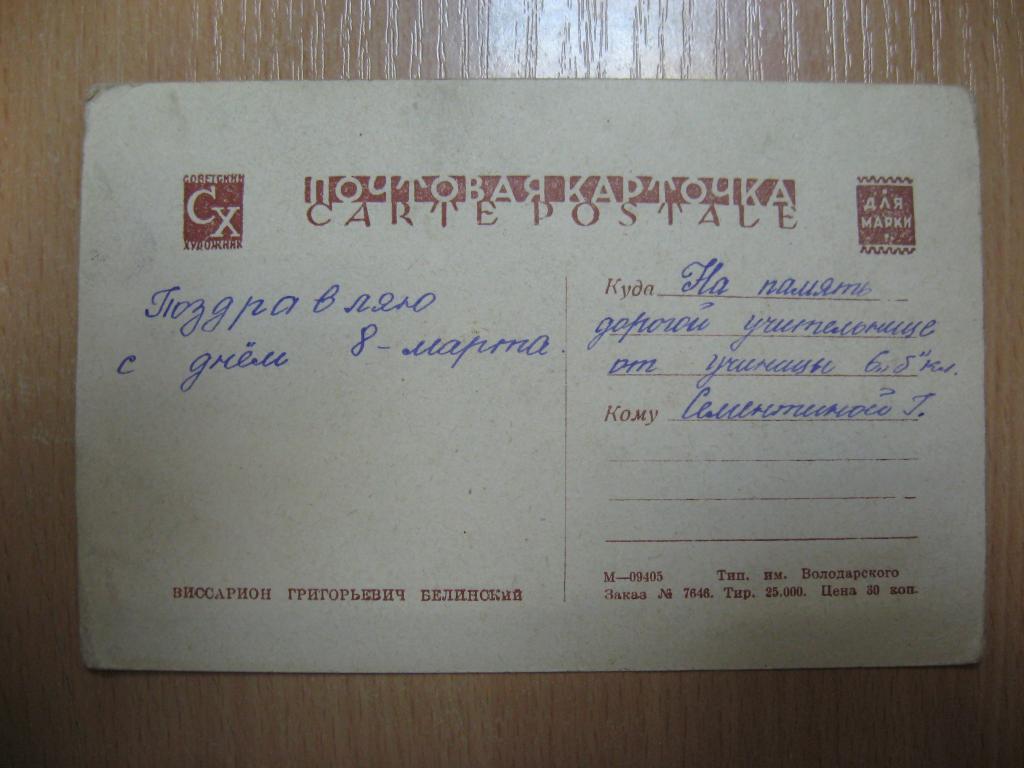 СОВЕТСКИЙ
СХ
ХУДОЖНИК
ПОЧТОВАЯ КАРТОЧКА
CARTE POSTALE
ДЛЯ
МАРКИ
Поздравляю
с днём 8-марта.
Куда На память
дорогой учительнице
от учиницы 6 „Б" кл.
Кому Сементиной Г.
ВИССАРИОН ГРИГОРЬЕВИЧ БЕЛИНСКИЙ
М—09405 Тип. им. Володарского
Заказ № 7646. Тир. 25.000. Цена 30 коп.